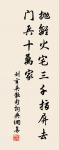 拋離火宅三千指屏去
門兵十萬家